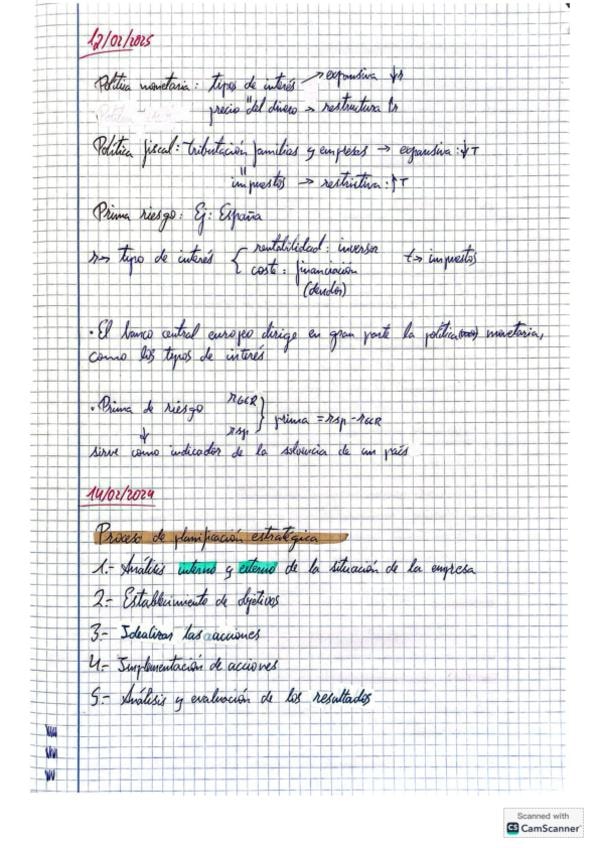 12/02/2025
Política monetaria: tipos de interés → expansiva ↓r
precio "del dinero → restructura ↑r
Política fiscal: tributación familias y empresas → expansiva: ↓T
"
impuestos → restrictiva: ↑T
Prima riesgo: Ej: España
r → tipo de interés { rentabilidad: inversor t → impuestos
coste: financiación
(deudor)
• El banco central europeo dirige en gran parte la política monetaria,
como los tipos de interés
• Prima de riesgo rGER } prima = rsp - rGER
↓ rsp
sirve como indicador de la solvencia de un país
14/02/2024
Proceso de planificación estratégica
1.- Análisis interno y externo de la situación de la empresa
2.- Establecimiento de objetivos
3.- Idealizar las acciones
4.- Implementación de acciones
5.- Análisis y evaluación de los resultados
Scanned with
CS CamScanner